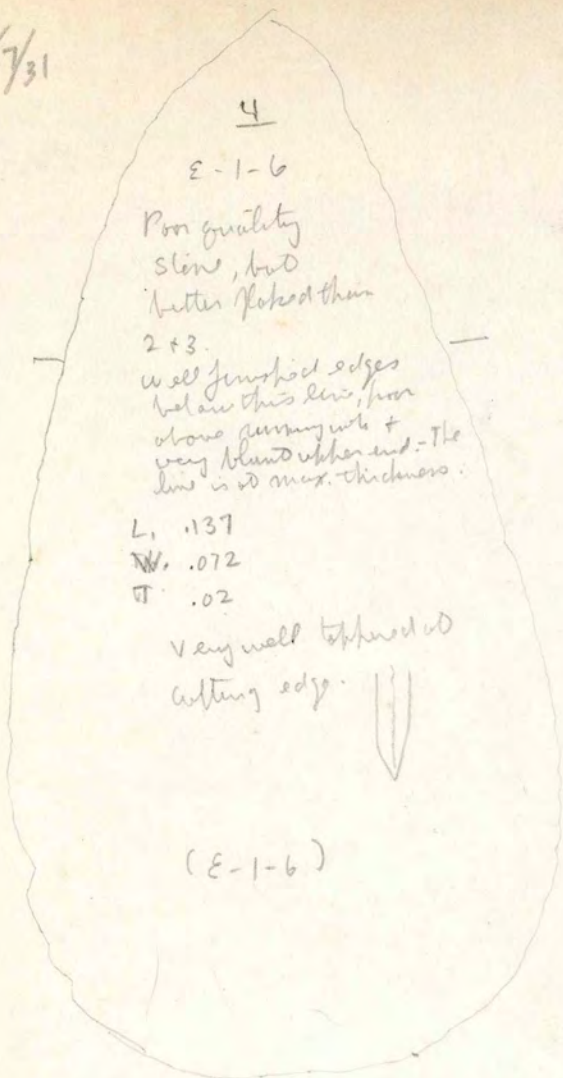 /7/31
4
E-1-6
Poor quality
stone, but
better flaked than
2 + 3.
well finished edges
below this line, poor
above running into +
very blunt upper end. - The
line is at max. thickness.
L. .137
W. .072
T .02
Very well tappered at
cutting edge.
(E-1-6)